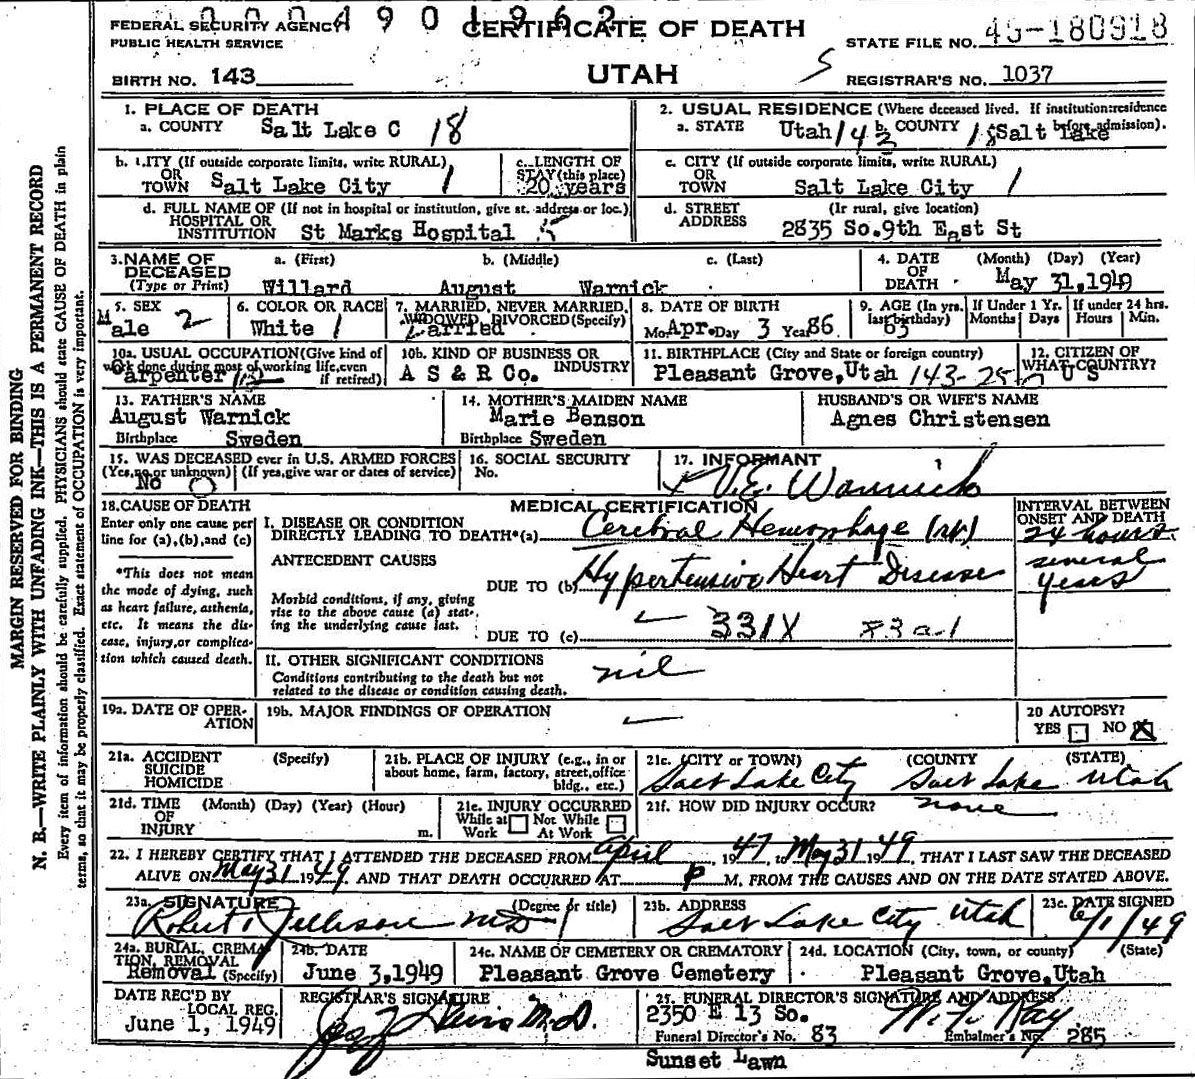 0 0 0 4 9 0 1 9 6 2
FEDERAL SECURITY AGENCY
PUBLIC HEALTH SERVICE
CERTIFICATE OF DEATH
STATE FILE NO. 49-180918
BIRTH NO. 143
UTAH
5
REGISTRAR'S NO. 1037
1. PLACE OF DEATH
a. COUNTY Salt Lake C 18
2. USUAL RESIDENCE (Where deceased lived. If institution: residence before admission).
a. STATE Utah 143 b. COUNTY 18 Salt Lake
b. CITY (If outside corporate limits, write RURAL)
OR
TOWN Salt Lake City 1
c. LENGTH OF
STAY (this place)
20 years
c. CITY (If outside corporate limits, write RURAL)
OR
TOWN Salt Lake City 1
d. FULL NAME OF (If not in hospital or institution, give st. address or loc.)
HOSPITAL OR
INSTITUTION St Marks Hospital 5
d. STREET (If rural, give location)
ADDRESS 2835 So.9th East St
3. NAME OF DECEASED (Type or Print)
a. (First) b. (Middle) c. (Last)
Willard August Warnick
4. DATE OF DEATH (Month) (Day) (Year)
May 31,1949
5. SEX
Male 2
6. COLOR OR RACE
White 1
7. MARRIED, NEVER MARRIED,
WIDOWED, DIVORCED (Specify)
Married
8. DATE OF BIRTH
Mo. Apr. Day 3 Year 86
9. AGE (In yrs. last birthday)
63
If Under 1 Yr.
Months Days
If under 24 hrs.
Hours Min.
10a. USUAL OCCUPATION (Give kind of
work done during most of working life, even
if retired)
Carpenter
10b. KIND OF BUSINESS OR
INDUSTRY
A S & R Co.
11. BIRTHPLACE (City and State or foreign country)
Pleasant Grove,Utah 143-25
12. CITIZEN OF
WHAT COUNTRY?
U S
13. FATHER'S NAME
August Warnick
Birthplace Sweden
14. MOTHER'S MAIDEN NAME
Marie Benson
Birthplace Sweden
HUSBAND'S OR WIFE'S NAME
Agnes Christensen
15. WAS DECEASED ever in U.S. ARMED FORCES
(Yes, no or unknown) (If yes, give war or dates of service)
No 0
16. SOCIAL SECURITY
No.
17. INFORMANT
x V.E. Warnick
18. CAUSE OF DEATH
Enter only one cause per
line for (a), (b), and (c)
*This does not mean
the mode of dying, such
as heart failure, asthenia,
etc. It means the dis-
ease, injury, or complica-
tion which caused death.
MEDICAL CERTIFICATION
INTERVAL BETWEEN
ONSET AND DEATH
I. DISEASE OR CONDITION
DIRECTLY LEADING TO DEATH*(a) Cerebral Hemorrhage (rt)
24 hours
ANTECEDENT CAUSES
DUE TO (b) Hypertensive Heart Disease
several
years
Morbid conditions, if any, giving
rise to the above cause (a) stat-
ing the underlying cause last.
DUE TO (c) 331X 83a-1
II. OTHER SIGNIFICANT CONDITIONS
Conditions contributing to the death but not
related to the disease or condition causing death.
nil
19a. DATE OF OPER-
ATION
19b. MAJOR FINDINGS OF OPERATION
20 AUTOPSY?
YES NO X
21a. ACCIDENT (Specify)
SUICIDE
HOMICIDE
21b. PLACE OF INJURY (e.g., in or
about home, farm, factory, street, office
bldg., etc.)
21c. (CITY or TOWN) (COUNTY (STATE)
Salt Lake City Salt Lake Utah
21d. TIME (Month) (Day) (Year) (Hour)
OF
INJURY m.
21e. INJURY OCCURRED
While at Not While
Work At Work
21f. HOW DID INJURY OCCUR?
none
22. I HEREBY CERTIFY THAT I ATTENDED THE DECEASED FROM April, 1947, to May 31 1949, THAT I LAST SAW THE DECEASED
ALIVE ON May 31 1949 AND THAT DEATH OCCURRED AT P M. FROM THE CAUSES AND ON THE DATE STATED ABOVE.
23a. SIGNATURE (Degree or title)
Robert Jellison MD
23b. ADDRESS
Salt Lake City Utah
23c. DATE SIGNED
6/1/49
24a. BURIAL, CREMA-
TION, REMOVAL
Removal (Specify)
24b. DATE
June 3,1949
24c. NAME OF CEMETERY OR CREMATORY
Pleasant Grove Cemetery
24d. LOCATION (City, town, or county) (State)
Pleasant Grove,Utah
DATE REC'D BY
LOCAL REG.
June 1, 1949
REGISTRAR'S SIGNATURE
M.D.
25. FUNERAL DIRECTOR'S SIGNATURE AND ADDRESS
2350 E 13 So.
Funeral Director's No. 83 Embalmer's No. 285
Sunset Lawn
MARGIN RESERVED FOR BINDING
N. B.—WRITE PLAINLY WITH UNFADING INK—THIS IS A PERMANENT RECORD
Every item of information should be carefully supplied. PHYSICIANS should state CAUSE OF DEATH in plain
terms, so that it may be properly classified. Exact statement of OCCUPATION is very important.